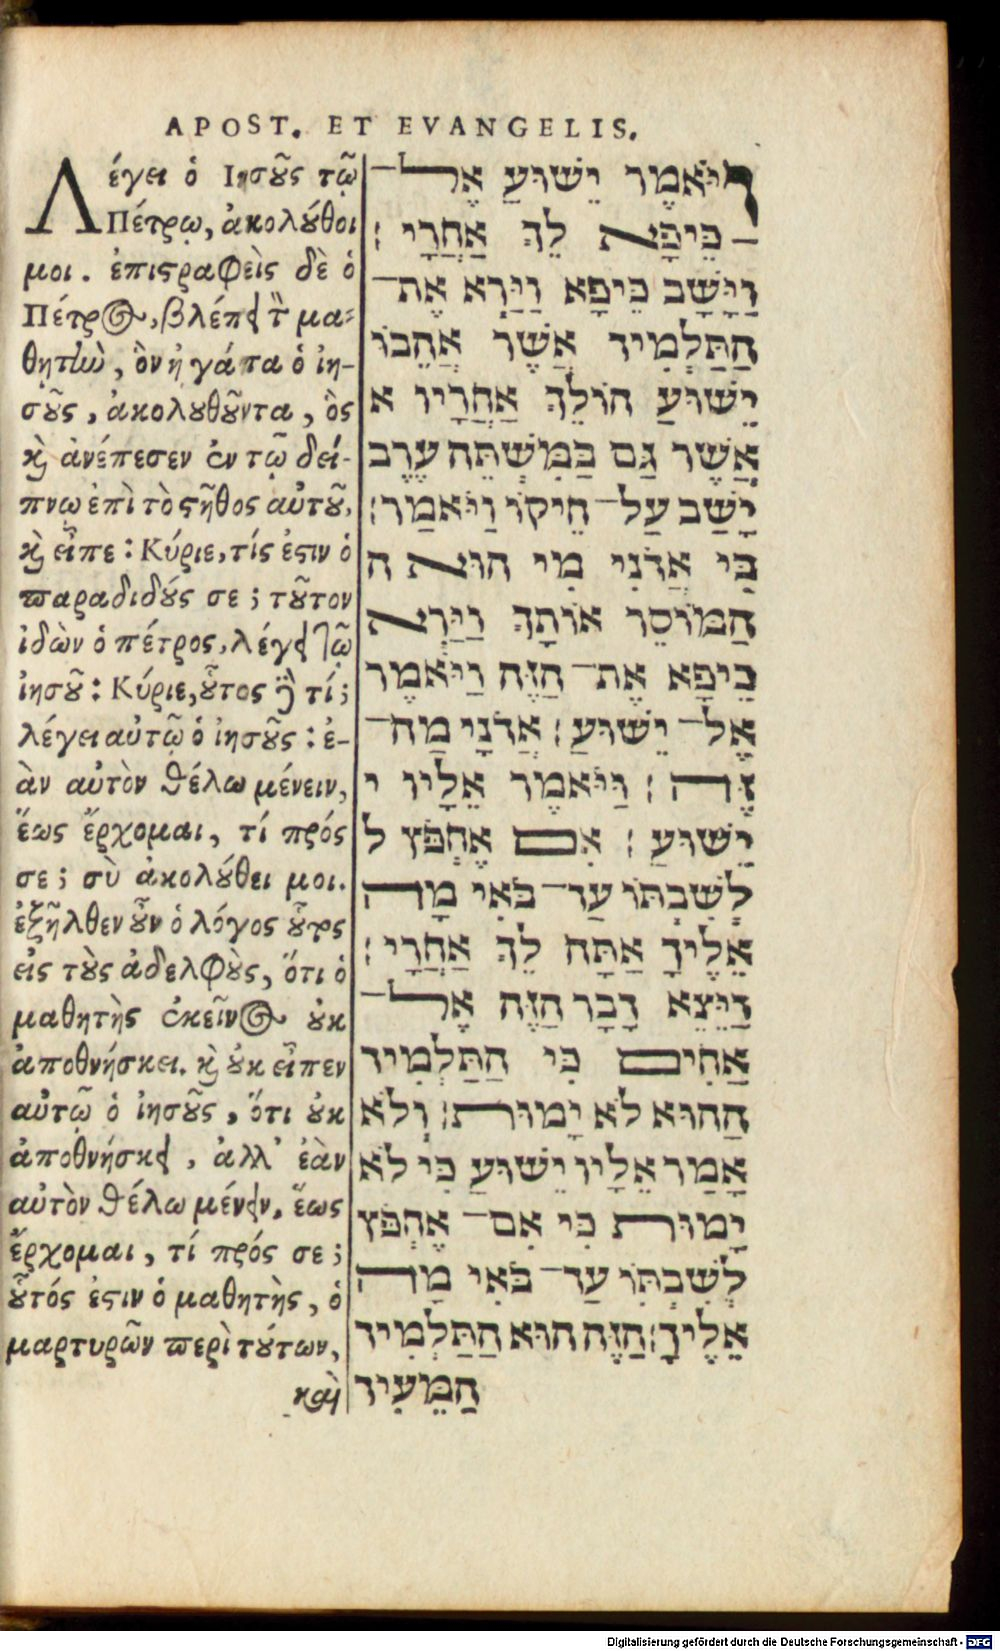 APOST. ET EVANGELIS.
Λέγει ὁ Ιησȣ͂ς τῷ
Πέτρῳ, ἀκολȣ́θοι
μοι. ἐπιϛραφεὶς δὲ ὁ
Πέτρος, βλέπει τ̀ μα-
θητὴν, ὃν ἠγάπα ὁ ἰη-
σȣ͂ς, ἀκολȣθȣ͂ντα, ὃς
ϗ̀ ἀνέπεσεν ἐν τῷ δεί-
πνῳ ἐπὶ τὸ ϛῆθος αὐτȣ͂,
ϗ̀ εἶπε: Κύριε, τίς ἐϛιν ὁ
παραδιδȣ́ς σε; τȣ͂τον
ἰδὼν ὁ πέτρος, λέγει τῷ
ἰησȣ͂: Κύριε, ȣ̓͂τος δὲ τί;
λέγει αὐτῷ ὁ ἰησȣ͂ς: ἐ-
ὰν αὐτὸν θέλω μένειν,
ἕως ἔρχομαι, τί πρός
σε; σὺ ἀκολȣ́θει μοι.
ἐξῆλθεν ȣ̓͂ν ὁ λόγος ȣ̓͂τος
εἰς τȣ̀ς ἀδελφȣ̀ς, ὅτι ὁ
μαθητὴς ἐκεῖνος ȣκ
ἀποθνήσκει. ϗ̀ ȣκ εἶπεν
αὐτῷ ὁ ἰησȣ͂ς, ὅτι ȣκ
ἀποθνήσκει, ἀλλ' ἐὰν
αὐτὸν θέλω μένειν, ἕως
ἔρχομαι, τί πρός σε;
ȣ̓͂τός ἐϛιν ὁ μαθητὴς, ὁ
μαρτυρῶν περὶ τȣ́των,
καὶ
וַיֹּאמֶר יֵשׁוּעַ אֶל־
כֵּיפָא לֵךְ אַחֲרָי׃
וַיָּשָׁב כֵּיפָא וַיַּרְא אֶת־
הַתַּלְמִיד אֲשֶׁר אֲהֵבוֹ
יֵשׁוּעַ הוֹלֵךְ אַחֲרָיו א
אֲשֶׁר גַּם בַּמִּשְׁתֵּה עֶרֶב
יָשַׁב עַל־חֵיקוֹ וַיֹּאמַר׃
כִּי אֲדֹנִי מִי הוּא ה
הַמּוֹסֵר אוֹתָךְ וַיַּרְא
כֵּיפָא אֶת־הַזֶּה וַיֹּאמֶר
אֶל־יֵשׁוּעַ׃ אֲדֹנָי מַה־
זֶּה׃ וַיֹּאמֶר אֵלָיו י
יֵשׁוּעַ׃ אִם אֶחְפֹּץ ל
לְשִׁבְתּוֹ עַד־בֹּאִי מָה
אֵלֶיךָ אַתָּה לֵךְ אַחֲרָי׃
וַיֵּצֵא דָבָר הַזֶּה אֶל־
אַחִים כִּי הַתַּלְמִיד
הַהוּא לֹא יָמוּת׃ וְלֹא
אָמַר אֵלָיו יֵשׁוּעַ כִּי לֹא
יָמוּת כִּי אִם־אֶחְפֹּץ
לְשִׁבְתּוֹ עַד־בֹּאִי מָה
אֵלֶיךָ׃ הַזֶּה הוּא הַתַּלְמִיד
הַמֵּעִיד
Digitalisierung gefördert durch die Deutsche Forschungsgemeinschaft - DFG